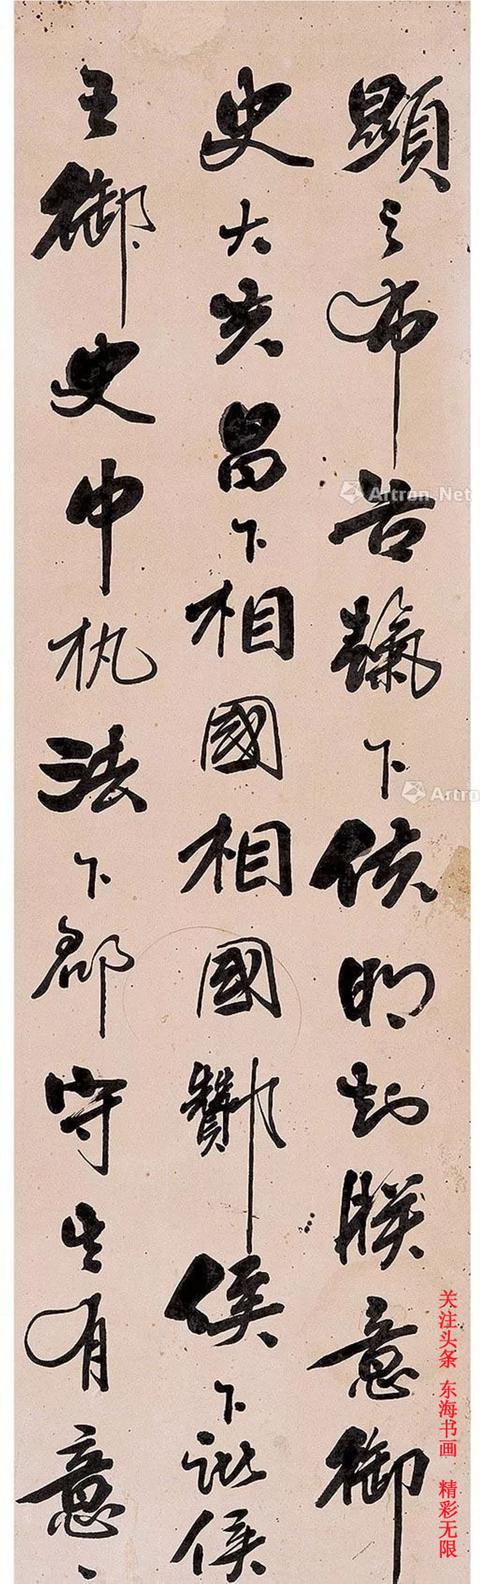 顯之布告天下使明知朕意御
史大夫昌下相國相國酇侯下諸侯
王御史中执法下郡守其有意、
Artron.Net
Artro
关注头条 东海书画 精彩无限